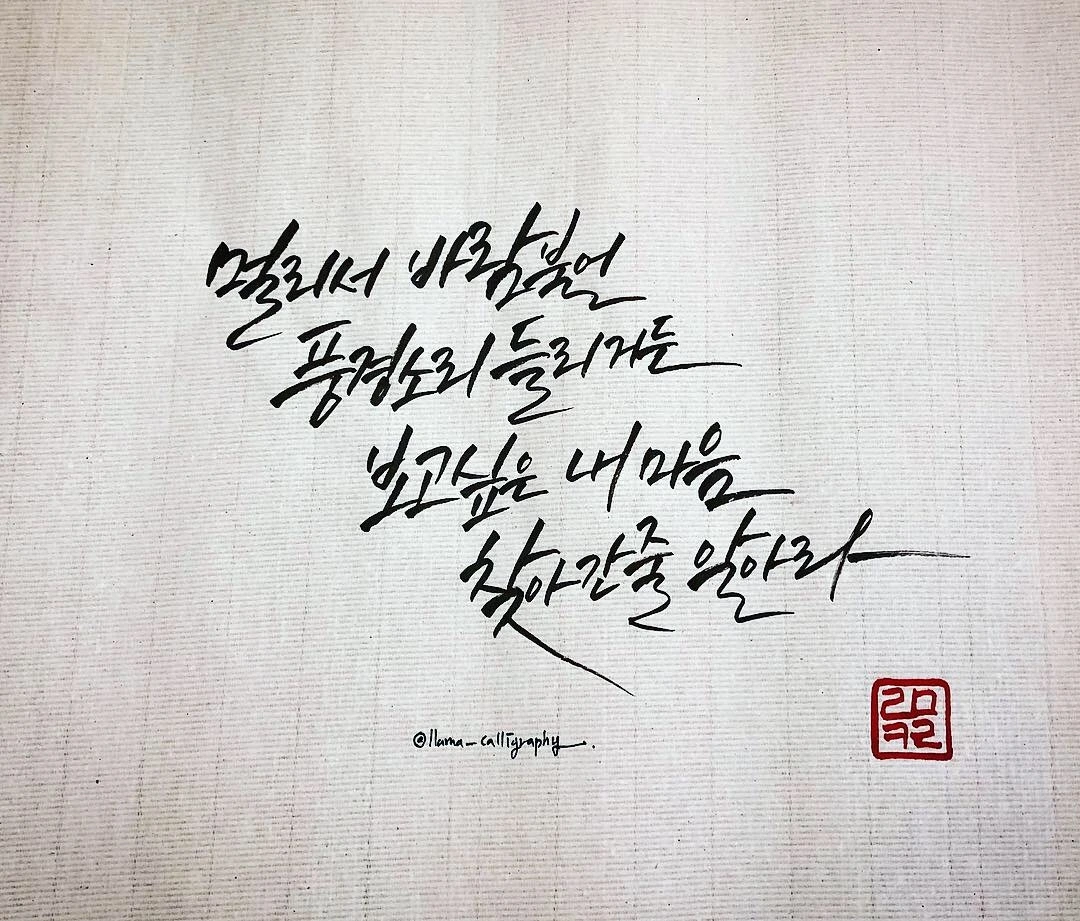 멀리서 바람불어
풍경소리 들리거든
보고싶은 내 마음
찾아간줄 알아라
@llama_calligraphy.
ㄹㅁ
ㅋㄹ